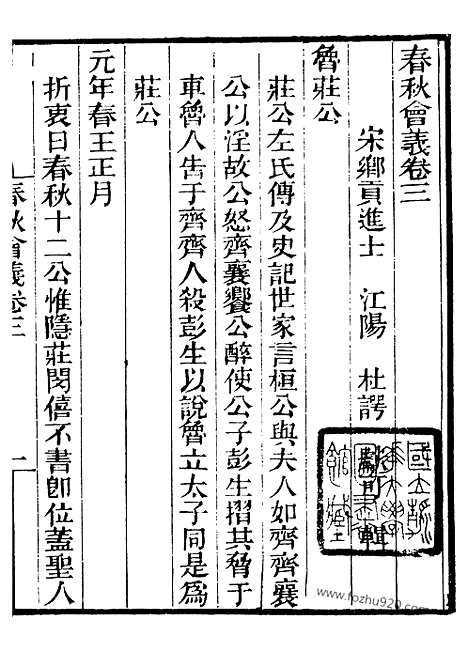 春秋會義卷三
宋鄉貢進士　江陽　杜諤　輯
魯莊公
莊公左氏傳及史記世家言桓公與夫人如齊齊襄
公以淫故公怒齊襄饗公醉使公子彭生摺其脅于
車魯人告于齊齊人殺彭生以說魯立太子同是爲
莊公
元年春王正月
折衷曰春秋十二公惟隱莊閔僖不書卽位蓋聖人
春秋會義卷三　一
www.fozhu920.com